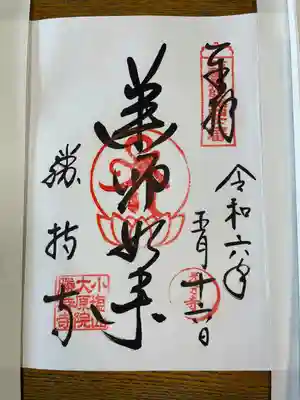 奉拝
令和六年
五月十六日
薬師如来
勝持寺
小塩山
大原院
勝持寺